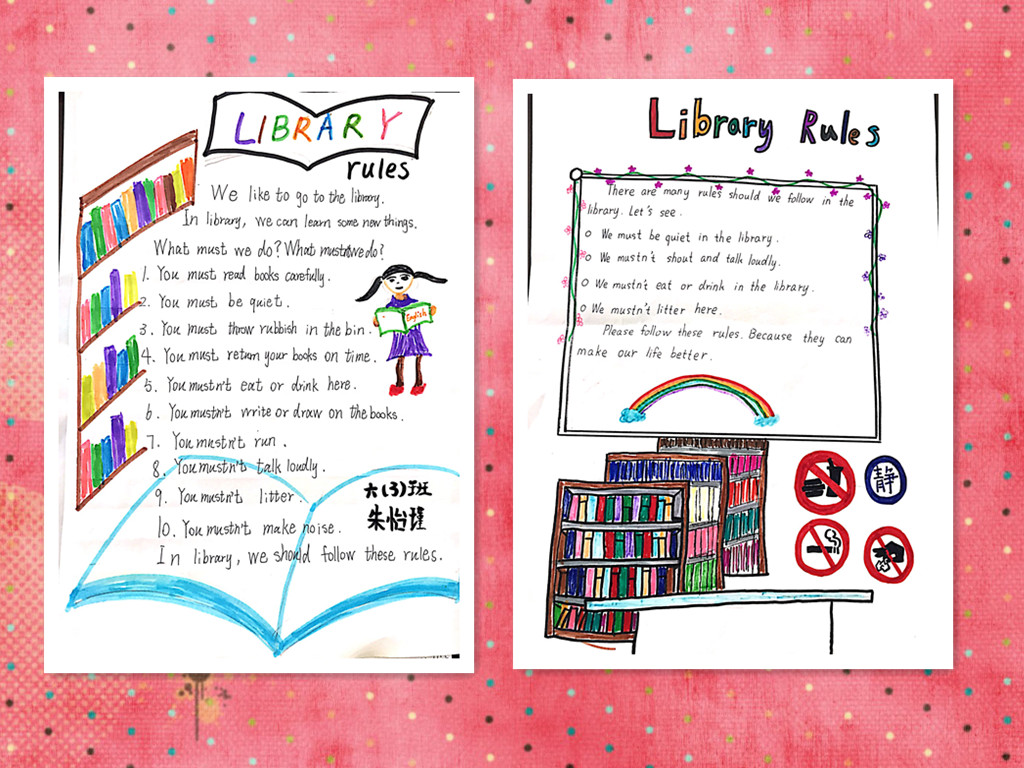 LIBRARY
rules
We like to go to the library.
In library, we can learn some new things.
What must we do? What mustn't we do?
1. You must read books carefully.
2. You must be quiet.
3. You must throw rubbish in the bin.
4. You must return your books on time.
5. You mustn't eat or drink here.
6. You mustn't write or draw on the books.
7. You mustn't run.
8. You mustn't talk loudly.
9. You mustn't litter.
10. You mustn't make noise.
In library, we should follow these rules.
English
六(3)班
朱怡瑾
Library Rules
There are many rules should we follow in the
library. Let's see.
We must be quiet in the library.
We mustn't shout and talk loudly.
We mustn't eat or drink in the library.
We mustn't litter here.
Please follow these rules. Because they can
make our life better.
静